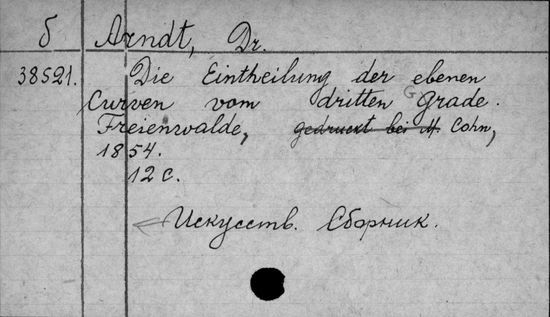 δ Arndt, Dr.
38521. Die Eintheilung der ebenen
Curven vom dritten Grade.
Freienwalde, gedruckt bei M. Cohn,
1854.
12 с.
Искусств. Сборник.